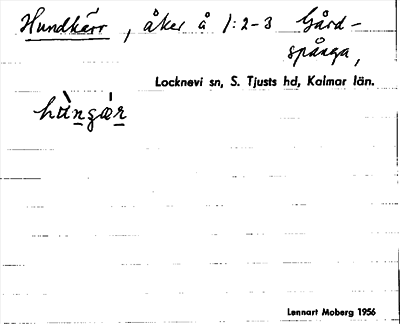 Hundkärr, åker å 1:2-3 Gård-
spånga,
Locknevi sn, S. Tjusts hd, Kalmar län.
hùngǽr
Lennart Moberg 1956